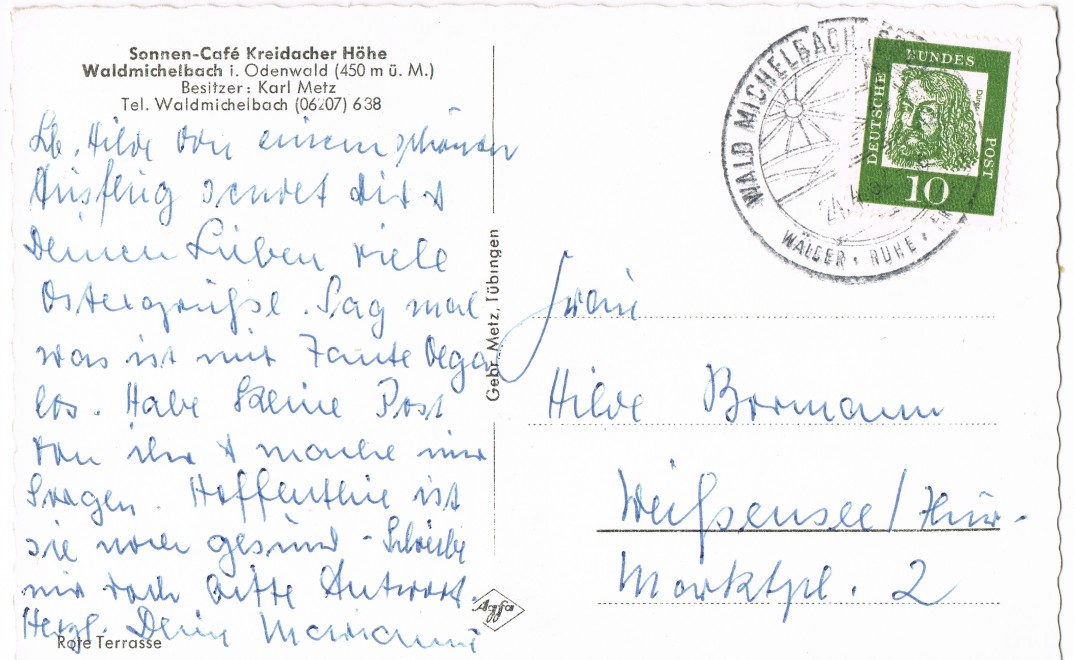 Sonnen-Café Kreidacher Höhe
Waldmichelbach i. Odenwald (450 m ü. M.)
Besitzer: Karl Metz
Tel. Waldmichelbach (06207) 638
Lb. Hilde von einem schönen
Ausflug sendet Dir &
Deinen Lieben viele
Ostergrüße. Sag mal
was ist mit Tante
los. Habe keine Post
von ihr & mache mir
Sorgen. Hoffentlich ist
sie noch gesund - Schreibe
mir doch bitte Antwort.
Herzl. Deine Marianne
Rote Terrasse
Gebr. Metz, Tübingen
Agfa
WALD MICHELBACH
WÄLDER · RUHE ·
DEUTSCHE BUNDES POST
Dürer
10
Frau
Hilde Bormann
Weißensee/Thür.
Marktpl. 2